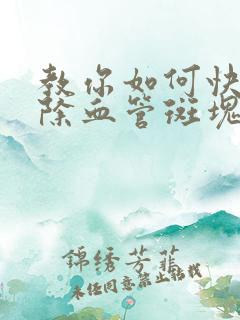 教你如何快
除血管斑塊
錦绣芳菲
未经同意禁止转载